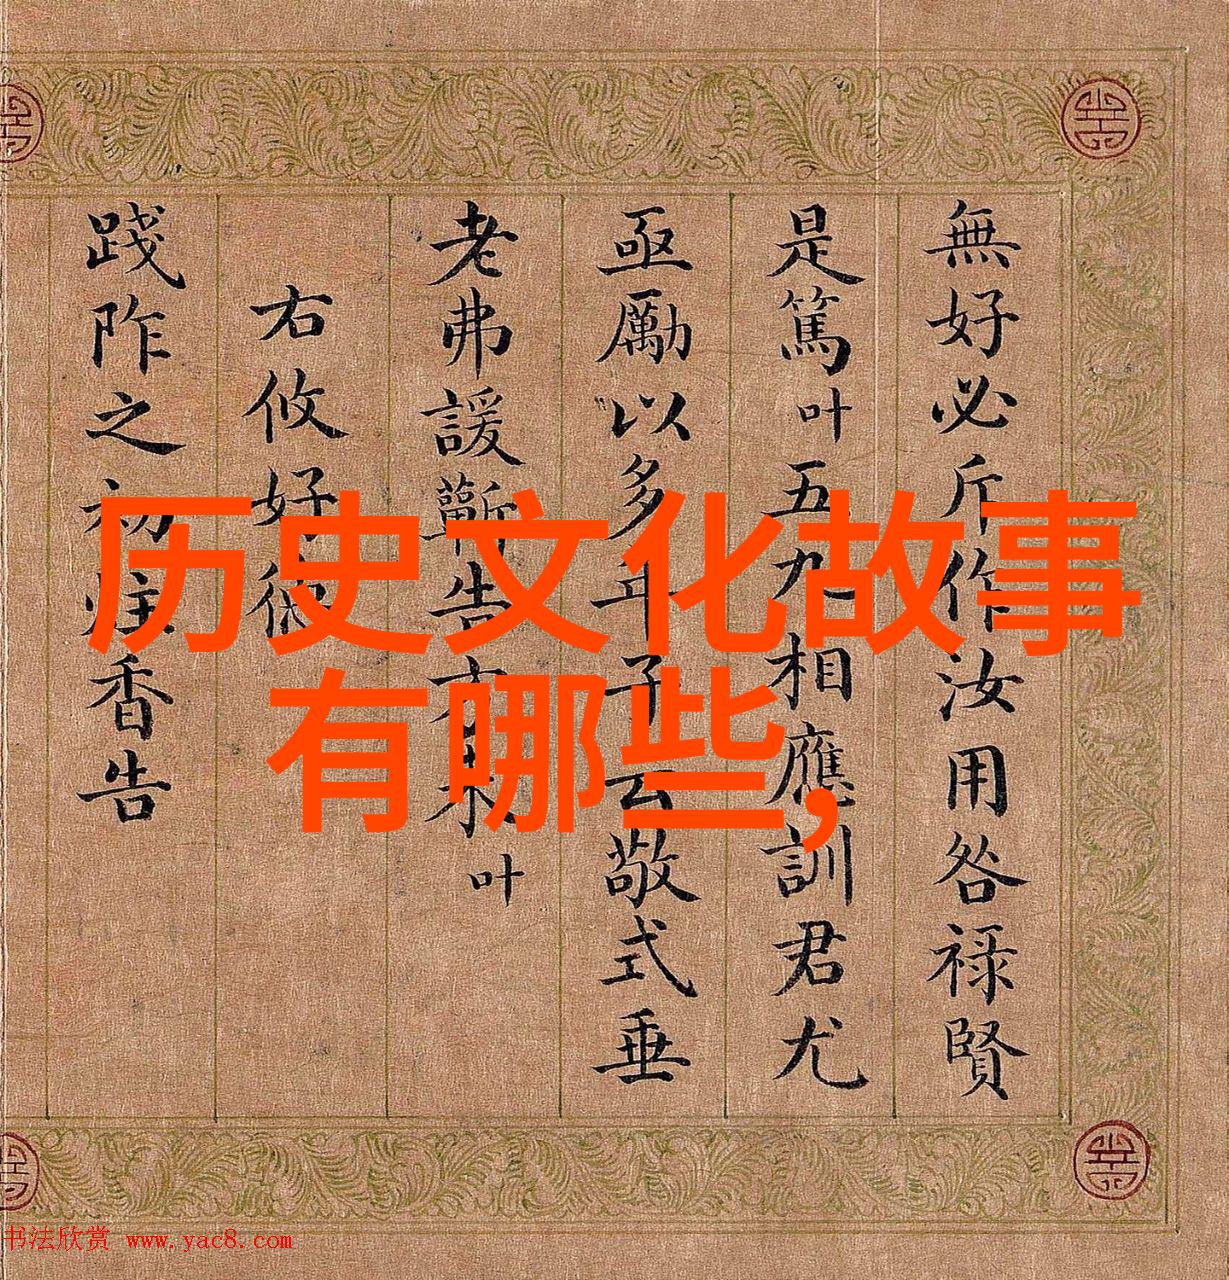 历史文化故事
有哪些,
無好必斤作汝用咎禄賢
是篤叶五九相應訓君尤
亟勵以多 子云敬式垂
老弗諼蘄告 未叶
右攸好德
踐阼之初炷香告
书法欣赏 www.yac8.com